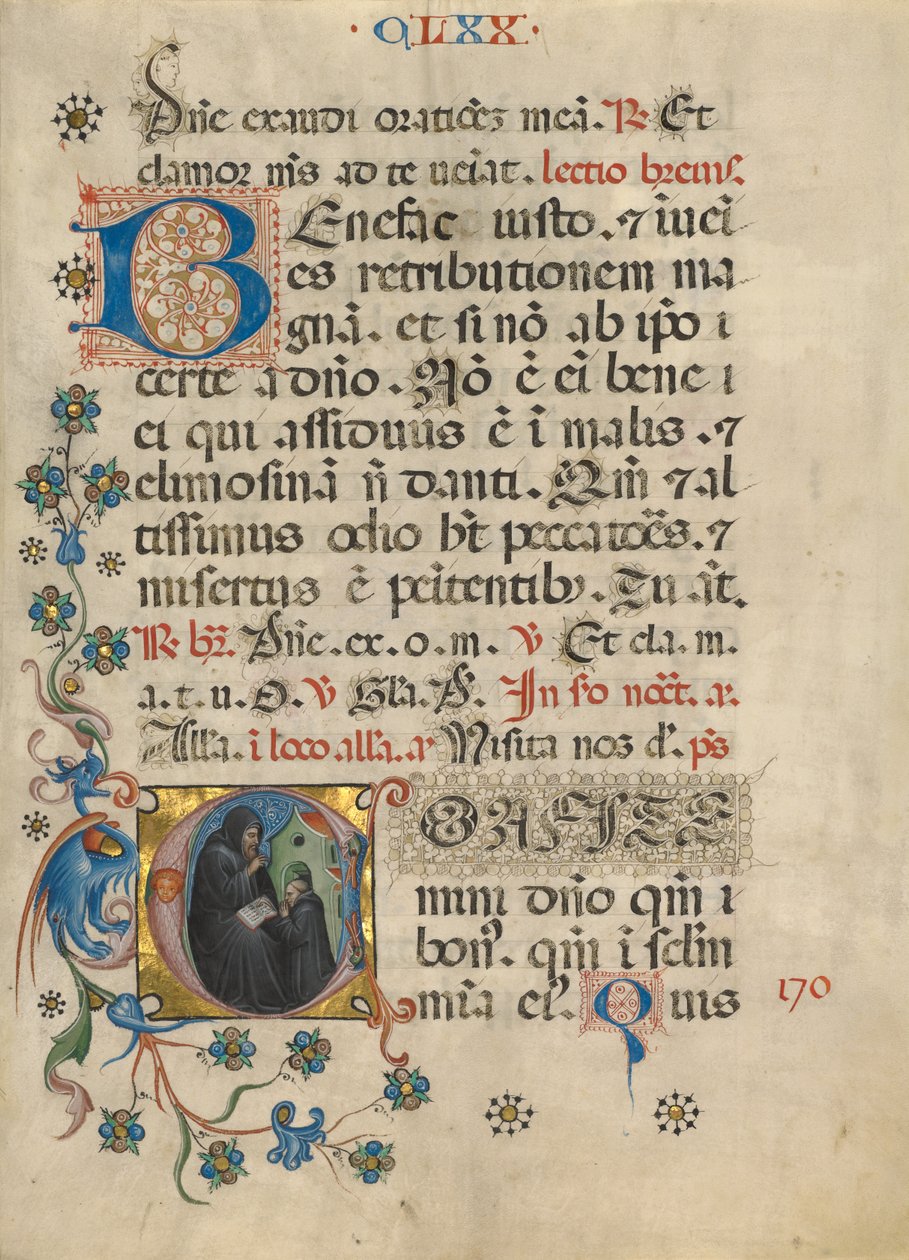 · QLXX ·
Dn̄e exaudi oratioēz meā. R. Et
clamor m̄s ad te ueīat. lectio breuis.
BEnefac iusto. ⁊ īueī
es retributionem ma
gnā. et si nō ab ip̄o i
certe a dn̄o. Nō ē eī bene i
ei qui assiduus ē ī malis. ⁊
elimosinā n̄ danti. Qm̄ ⁊ al
tissimus odio h̄t peccatoēs. ⁊
misertus ē peītentibꝫ. Tu aūt.
R. br̄. Dn̄e. ex. o. m. V Et cla. m.
a. t. u. O. V Gl̄a. P̄s. In sc̄o noct̄. a.
All̄a. ī loco all̄a. a. Uisita nos d̄. p̄s
COnFITE
mini dn̄o qm̄ i
bonꝰ. qm̄ i sclm̄
mīa eiꝰ. Quis
170